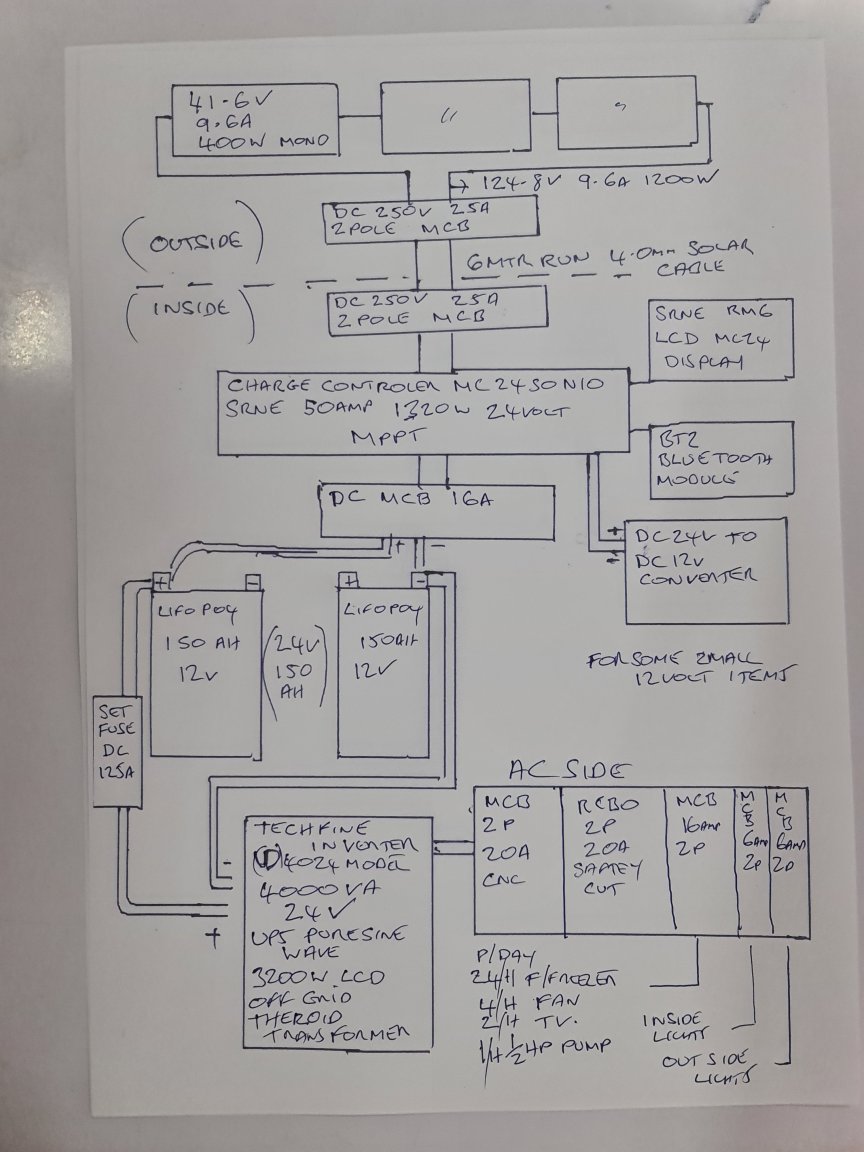 41.6V
9.6A
400W MONO
"
"
→ 124.8V 9.6A 1200W
DC 250V 25A
2POLE MCB
(OUTSIDE)
6MTR RUN 4.0mm SOLAR
CABLE
(INSIDE)
DC 250V 25A
2 POLE MCB
SRNE RM6
LCD MC24
DISPLAY
CHARGE CONTROLER MC2450N10
SRNE 50AMP 1320W 24VOLT
MPPT
BT2
BLUETOOTH
MODULE
DC MCB 16A
+ -
+
-
DC 24V TO
DC 12V
CONVERTER
+ -
+ -
LIFOPO4
150 AH
12V
(24V
150
AH)
LIFOPO4
150AH
12V
FOR SOME SMALL
12VOLT ITEMS
SET
FUSE
DC
125A
AC SIDE
MCB
2P
20A
CNC
RCBO
2P
20A
SAFTEY
CUT
MCB
16AMP
2P
MCB
6AMP
2P
MCB
6AMP
2P
TECHFINE
INVERTER
4024 MODEL
4000VA
24V
UPS PURESINE
WAVE
3200W LCD
OFF GRID
THEROID
TRANSFORMER
-
+
P/DAY
24/H F/FREEZER
4/H FAN
2/H TV.
1/H ½HP PUMP
INSIDE
LIGHTS
OUTSIDE
LIGHTS